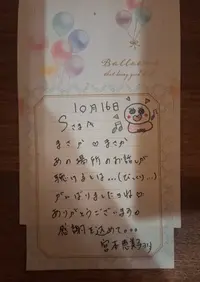 Balloon
10月16日
Sさま
まさか♡まさか
あの場所のお話しが
聴けましとは...(びっくり)...
がんばりましたね♡
ありがとうございます♡
感謝を込めて...
宮本恵利より